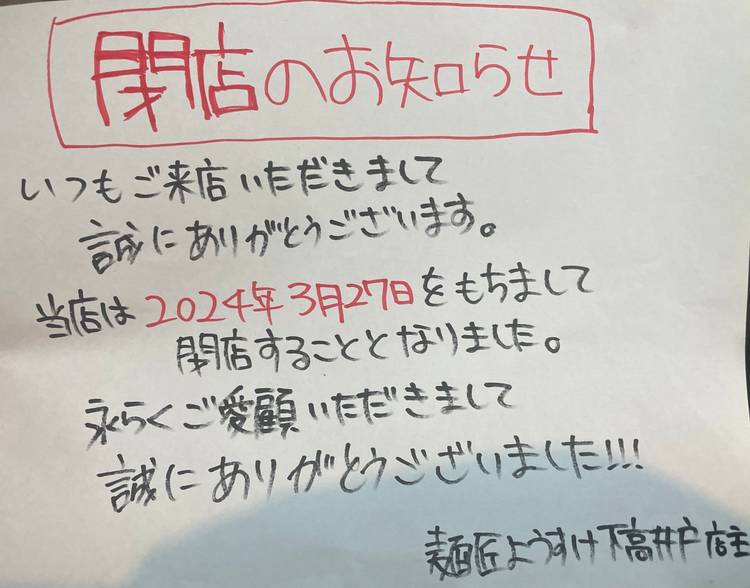 閉店のお知らせ
いつもご来店いただきまして
誠にありがとうございます。
当店は2024年3月27日をもちまして
閉店することとなりました。
永らくご愛顧いただきまして
誠にありがとうございました!!!
麺匠ようすけ下高井戸店主